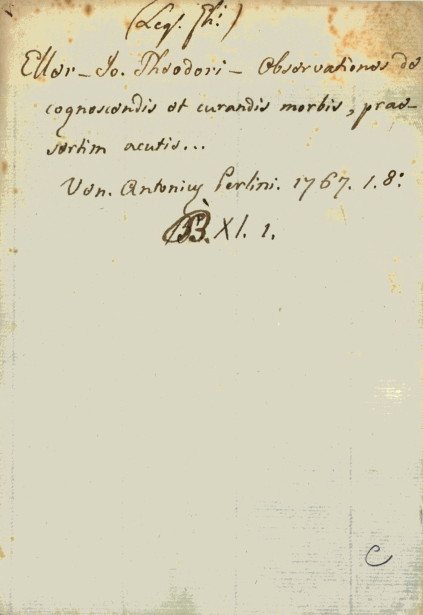 (Leg. Fh:)
Eller - Io. Theodori - Observationes de
cognoscendis et curandis morbis, prae-
sertim acutis...
Ven. Antonius Perlini. 1767. 1. 8:
B. XI. 1.
C